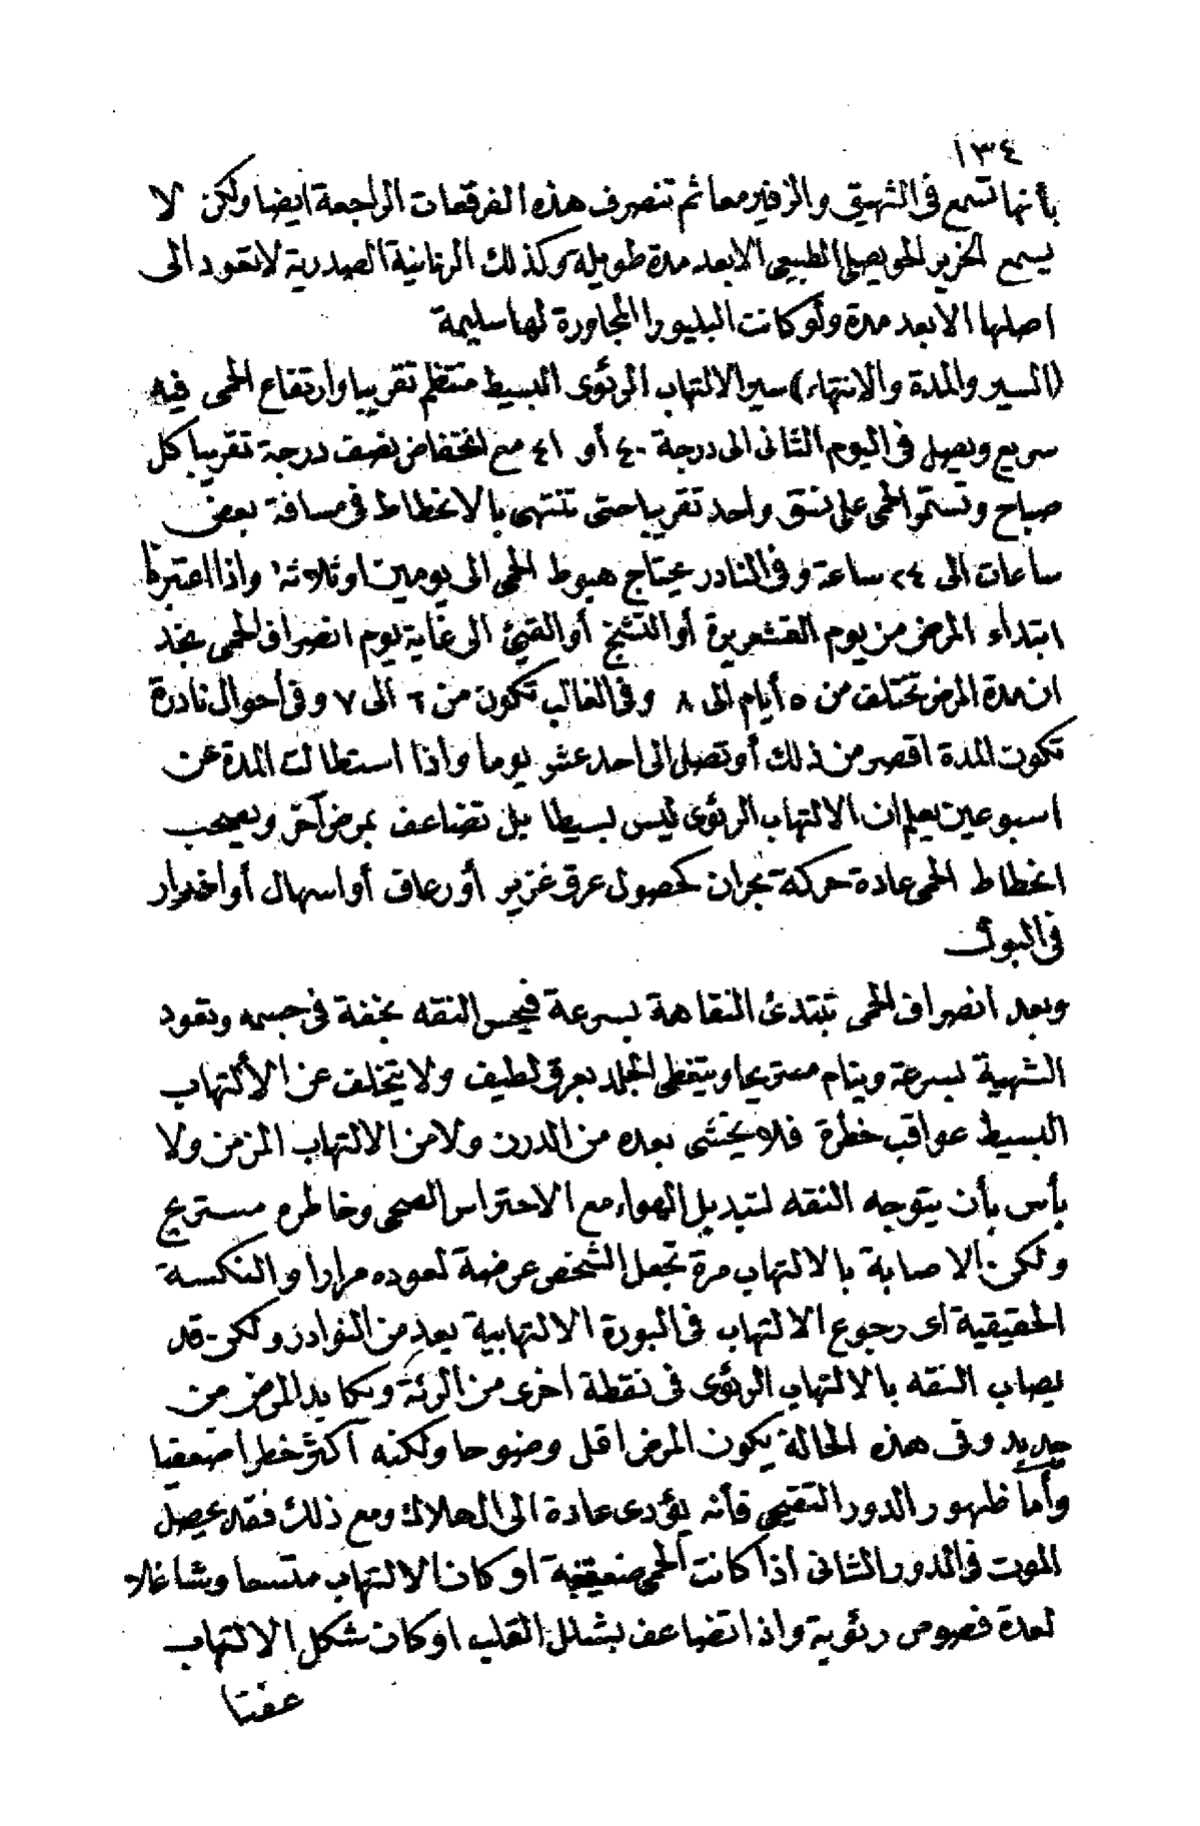 ١٣٤
بأنها تسمع فى الشهيق والزفير معا ثم تنصرف هذه الفرقعات الراجعة ايضا ولكن لا
يسمع الخرير الحويصلى الطبيعى الا بعد مدة طويله وكذلك الرنانية الصدرية لا تعود الى
اصلها الا بعد مدة ولو كانت البليورا المجاورة لها سليمة
(السير والمدة والانتهاء) سير الالتهاب الرئوى البسيط منتظم تقريبا وارتفاع الحمى فيه
سريع ويصل فى اليوم الثانى الى درجة ٤٠ أو ٤١ مع انخفاض نصف درجة تقريبا كل
صباح وتستمر الحمى على نسق واحد تقريبا حتى تنتهى بالانحطاط فى مسافة بعض
ساعات الى ٢٤ ساعة وفى النادر يحتاج هبوط الحمى الى يومين او ثلاثة واذا اعتبرنا
ابتداء المرض من يوم القشعريرة أو التشنج أو القيئ الى غاية يوم انصراف الحمى نجد
ان مدة المرض تختلف من ٥ أيام الى ٨ وفى الغالب تكون من ٦ الى ٧ وفى أحوال نادرة
تكون المدة اقصر من ذلك أو تصل الى احد عشر يوما واذا استطالت المدة عن
اسبوعين يعلم ان الالتهاب الرئوى ليس بسيطا بل تضاعف بمرض آخر ويصحب
انحطاط الحمى عادة حركة بحران كحصول عرق غزير أو رعاف أو اسهال أو اغزرار
فى البول
وبعد انصراف الحمى تبتدئ النقاهة بسرعة فيحس النقه بخفة فى جسمه وتعود
الشهية بسرعة وينام مستريحا ويتغطى الجلد بعرق لطيف ولا يتخلف عن الألتهاب
البسيط عواقب خطرة فلا يخشى بعده من الدرن ولا من الالتهاب المزمن ولا
بأس بأن يتوجه النقه لتبديل الهواء مع الاحتراس الصحى وخاطره مستريح
ولكن الاصابة بالالتهاب مرة تجعل الشخص عرضة لعوده مرارا والنكسة
الحقيقية اى رجوع الالتهاب فى البورة الالتهابية يعد من النوادر ولكن قد
يصاب النقه بالالتهاب الرئوى فى نقطة اخرى من الرئة ويكابد المرض من
جديد وفى هذه الحالة يكون المرض اقل وضوحا ولكنه أكثر خطرا
وأما ظهور الدور التقيحى فأنه يؤدى عادة الى الهلاك ومع ذلك فقد يحصل
الموت فى الدور الثانى اذا كانت الحمى او كان الالتهاب متسعا وشاغلا
لعدة فصوص رئوية واذا تضاعف بشلل القلب او كان شكل الالتهاب
عفنا